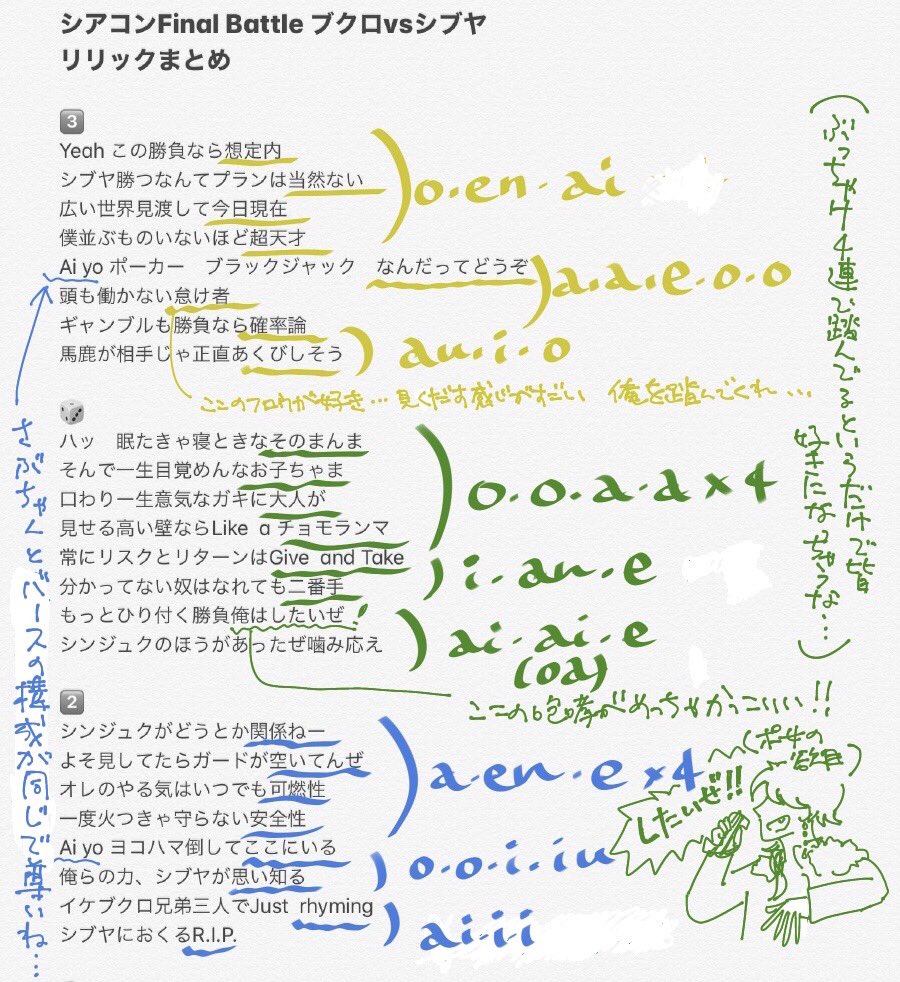 シアコンFinal Battle ブクロvsシブヤ
リリックまとめ
3
Yeah この勝負なら想定内
シブヤ勝つなんてプランは当然ない
広い世界見渡して今日現在
僕並ぶものいないほど超天才
Ai yo ポーカー　ブラックジャック　なんだってどうぞ
頭も働かない怠け者
ギャンブルも勝負なら確率論
馬鹿が相手じゃ正直あくびしそう
o・en・ai
a.a.e.o.o
au・i・o
ここのフロウが好き…見くだす感じがすごい 俺を踏んでくれ…
ハッ　眠たきゃ寝ときなそのまんま
そんで一生目覚めんなお子ちゃま
口わり一生意気なガキに大人が
見せる高い壁ならLike a チョモランマ
常にリスクとリターンはGive and Take
分かってない奴はなれても二番手
もっとひり付く勝負俺はしたいぜ
シンジュクのほうがあったぜ噛み応え
o.o.a.a×4
i.an.e
ai.ai.e
(oa)
ここの咆哮がめっちゃかっこいい!!
(ぶっちゃけ4連で踏んでるというだけで皆
好きになっちゃうな…)
2
シンジュクがどうとか関係ねー
よそ見してたらガードが空いてんぜ
オレのやる気はいつでも可燃性
一度火つきゃ守らない安全性
Ai yo ヨコハマ倒してここにいる
俺らの力、シブヤが思い知る
イケブクロ兄弟三人でJust rhyming
シブヤにおくるR.I.P.
a.en.e×4
o.o.i.iu
ai.i.i
さぶちゃんとバースの構成が同じで尊いね…
したいぜ!!